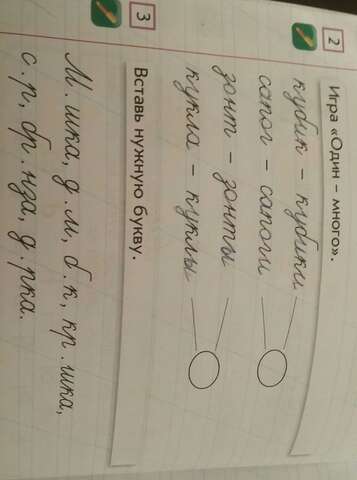 2 Игра «Один – много».
кубик – кубики
сапог – сапоги
зонт – зонты
кукла – куклы
3 Вставь нужную букву.
М.шка, д.м, б.к, кр.шка,
с.п, бр.нза, д.рка.